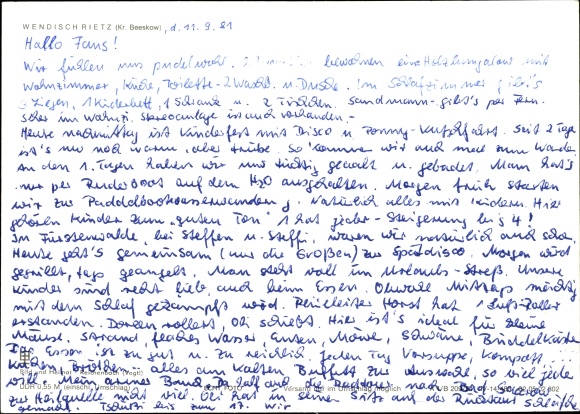 WENDISCH RIETZ (Kr. Beeskow) , d. 11. 9. 81
Hallo Fans!
Wir fühlen uns pudelwohl. bewohnen eine Holzbungalow mit
Wohnzimmer, Küche, Toilette - 2 Waschb. u. Dusche. Im Schlafzimmer gibt's
3 Liegen, 1 Kinderbett, 1 Schrank u. 2 Tischchen. Sandmann gibt's per Fern-
seher im Wohnzi. Stereoanlage ist auch vorhanden. -
Heute nachmittag ist Kinderfest mit Disco u. Ponny-Kutschfahrt. Seit 2 Tage
ist's nur noch warm, aber trübe. So kommen wir auch mal zum Wandern.
An den 1. Tagen haben wir uns tüchtig geaalt u. gebadet. Man hat's
nur per Ruderboot auf dem H2O ausgehalten. Morgen früh starten
wir zur Paddelbootwasserwanderung. Natürlich alles mit Kindern. Hier
gehören Kinder zum "guten Ton" 1 hat jeder - Steigerung bis 4!
Im Fürstenwalde, bei Steffen u. Steffi, waren wir natürlich auch schon.
Heute geht's gemeinsam (nur die Großen) zur Spätdisco. Morgen wird
gegrillt, tags geangelt. Man steht voll im Urlaubs-Streß. Unsere
Kinder sind recht lieb, auch beim Essen. Obwohl Mittags mächtig
mit dem Schlaf gekämpft wird. Reiseleiter Horst hat 1 Luft-Roller
erstanden. Doreen rollert, Oli schiebt. Hier ist's ideal für kleine
Mäuse. Strand, flaches Wasser, Enten, Möwe, Schwäne, Buddelkiste
Essen ist zu gut u. zu reichlich, jeden Tag Vorsuppe, Kompott
Kuchen, Brötchen - alles am kalten Buffett zur Auswahl, so viel jeder
will. Mein armer Bauch, da half auch die Radtour nach
zur Heilquelle nicht viel. Oli hat in seiner Saft auf der Rücktour
gemacht. Tschüß bis zum 17. Wir